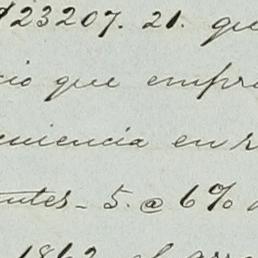 $23207. 21. que
cio que empre
niencia en r
antes - 5. @ 6% a
1862. el